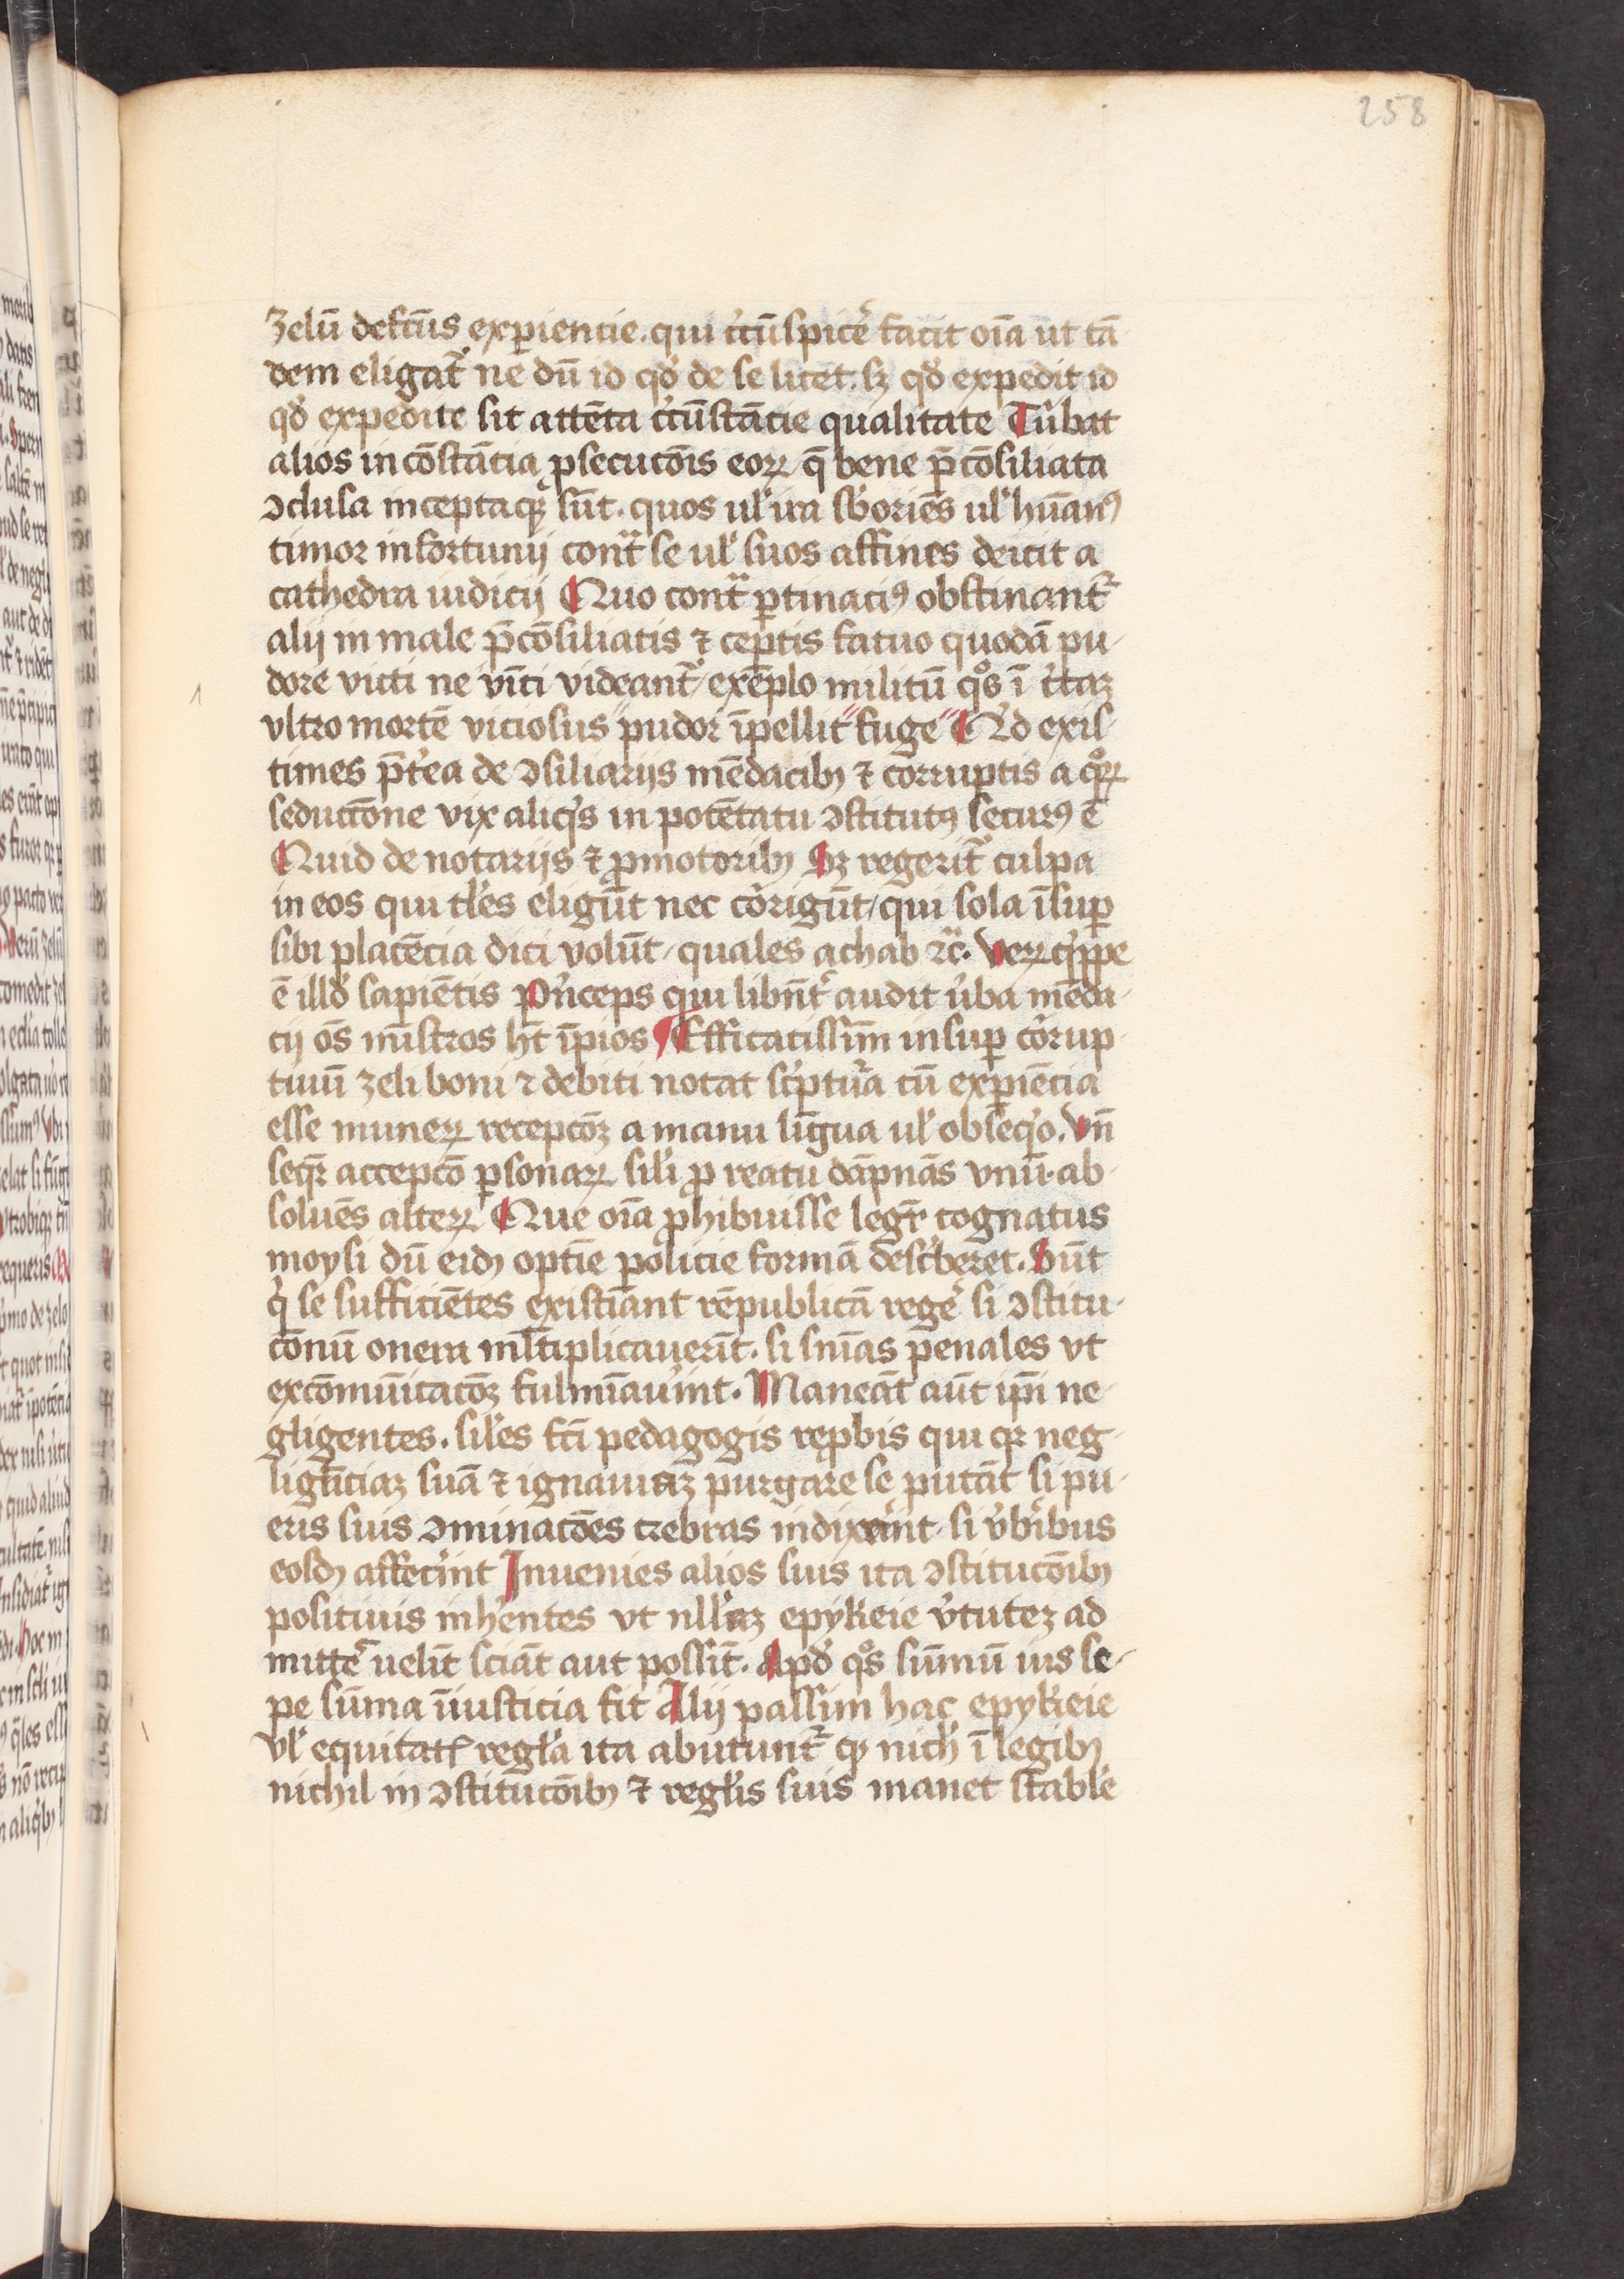 258
zelū defctūs exꝑiencie. qui ꝯcūspicẻ facit oīa ut tā
dem eligat᷑ ne dū id qd̕ de se licet. sꝫ qd̕ expedit id
qd̕ expedite sit attēta cc̕ūstācie qualitate Tûbat
alios incōstācia ꝓsecucōis eoꝝ q̄ bene p̄cōsiliata
ꝯclusa inceptaqꝫ sūt. quos ul̕ ira sb̕oriēs ul̕ hūanꝰ
timor infortunij cont᷑ se ul̕ suos affines deicit a
cathedra iudicij Quo cont᷑ ꝑtinaciꝰ obstinant᷑
alij in male p̄cōsiliatis ⁊ ceptis fatuo quodā pu-
dore victi ne vīci videant᷑ / exēplo militū qͦs ī c̕taꝫ
vltro mortē viciosus pudor īpellit fuge Qͥd exis
times p̄t̕ea de ꝯsiliarijs mēdacibꝫ ⁊ corruptis a qͦꝝ
seduccōne vix aliqͥs in potētatu ꝯstitutꝰ securꝰ ē
Quid de notarijs ⁊ ꝓmotoribꝫ Sꝫ regerit᷑ culpa
in eos qui tl̕es eligūt nec coŕigūt / qui sola īsuꝑ
sibi placēcia dici volūt / quales achab ⁊c̄. Veꝝ qͥppe
ē illd̕ sapiētis Pͥnceps qui libn̄t᷑ audit v̕ba mēda-
cij oēs mīstros hꝫ īpios ¶ Efficacissim̄ insuꝑ coŕup-
tiuū zeli boni ⁊ debiti notat sc̕ptur̕a cū exꝑiēcia
esse muneꝝ recepcōꝫ a manu līgua ul̕ obseqͥo. Vn̄
seqr᷑ accepcō ꝑsonaꝝ sil̕i ꝓ reatu dāpnās vnū. ab-
soluēs alteꝝ Que oīa ꝓhibuisse legr᷑ cognatus
moysi dū eidꝫ optīe policie formā descͥberet. Sūt
qͥ se sufficiētes existīant rēpublicā regẻ si ꝯstitu-
cōnū onera ml̕tiplicauerīt. si sn̄ias penales vt
excōmūicacōꝫ fulmīau̕int. Maneāt aūt ip̄i ne-
gligentes. sil̕es fc̄i pedagogis reꝓbis qui qꝫ neg-
ligēciaꝫ suā ⁊ ignauiaꝫ purgare se putāt si pu-
eris suis ꝯminacōes crebras indixerint. si v̕b̕ibus
eosdꝫ affecͥint Inuenies alios suis ita ꝯstitucōibꝫ
positiuis inh̕entes vt nll̕aꝫ epykeie v̕tuteꝫ ad
mittẻ uelīt sciāt aut possīt. Apd̕ qͦs sūmū ius se-
pe sūma iniusticia fit Alij passim hac epykeie
vl̕ equitatꝭ regl̕a ita abutunt᷑ ꝙ nich̕ ī legibꝫ
nichil in ꝯstitucōibꝫ ⁊ regl̕is suis manet stabl̕e